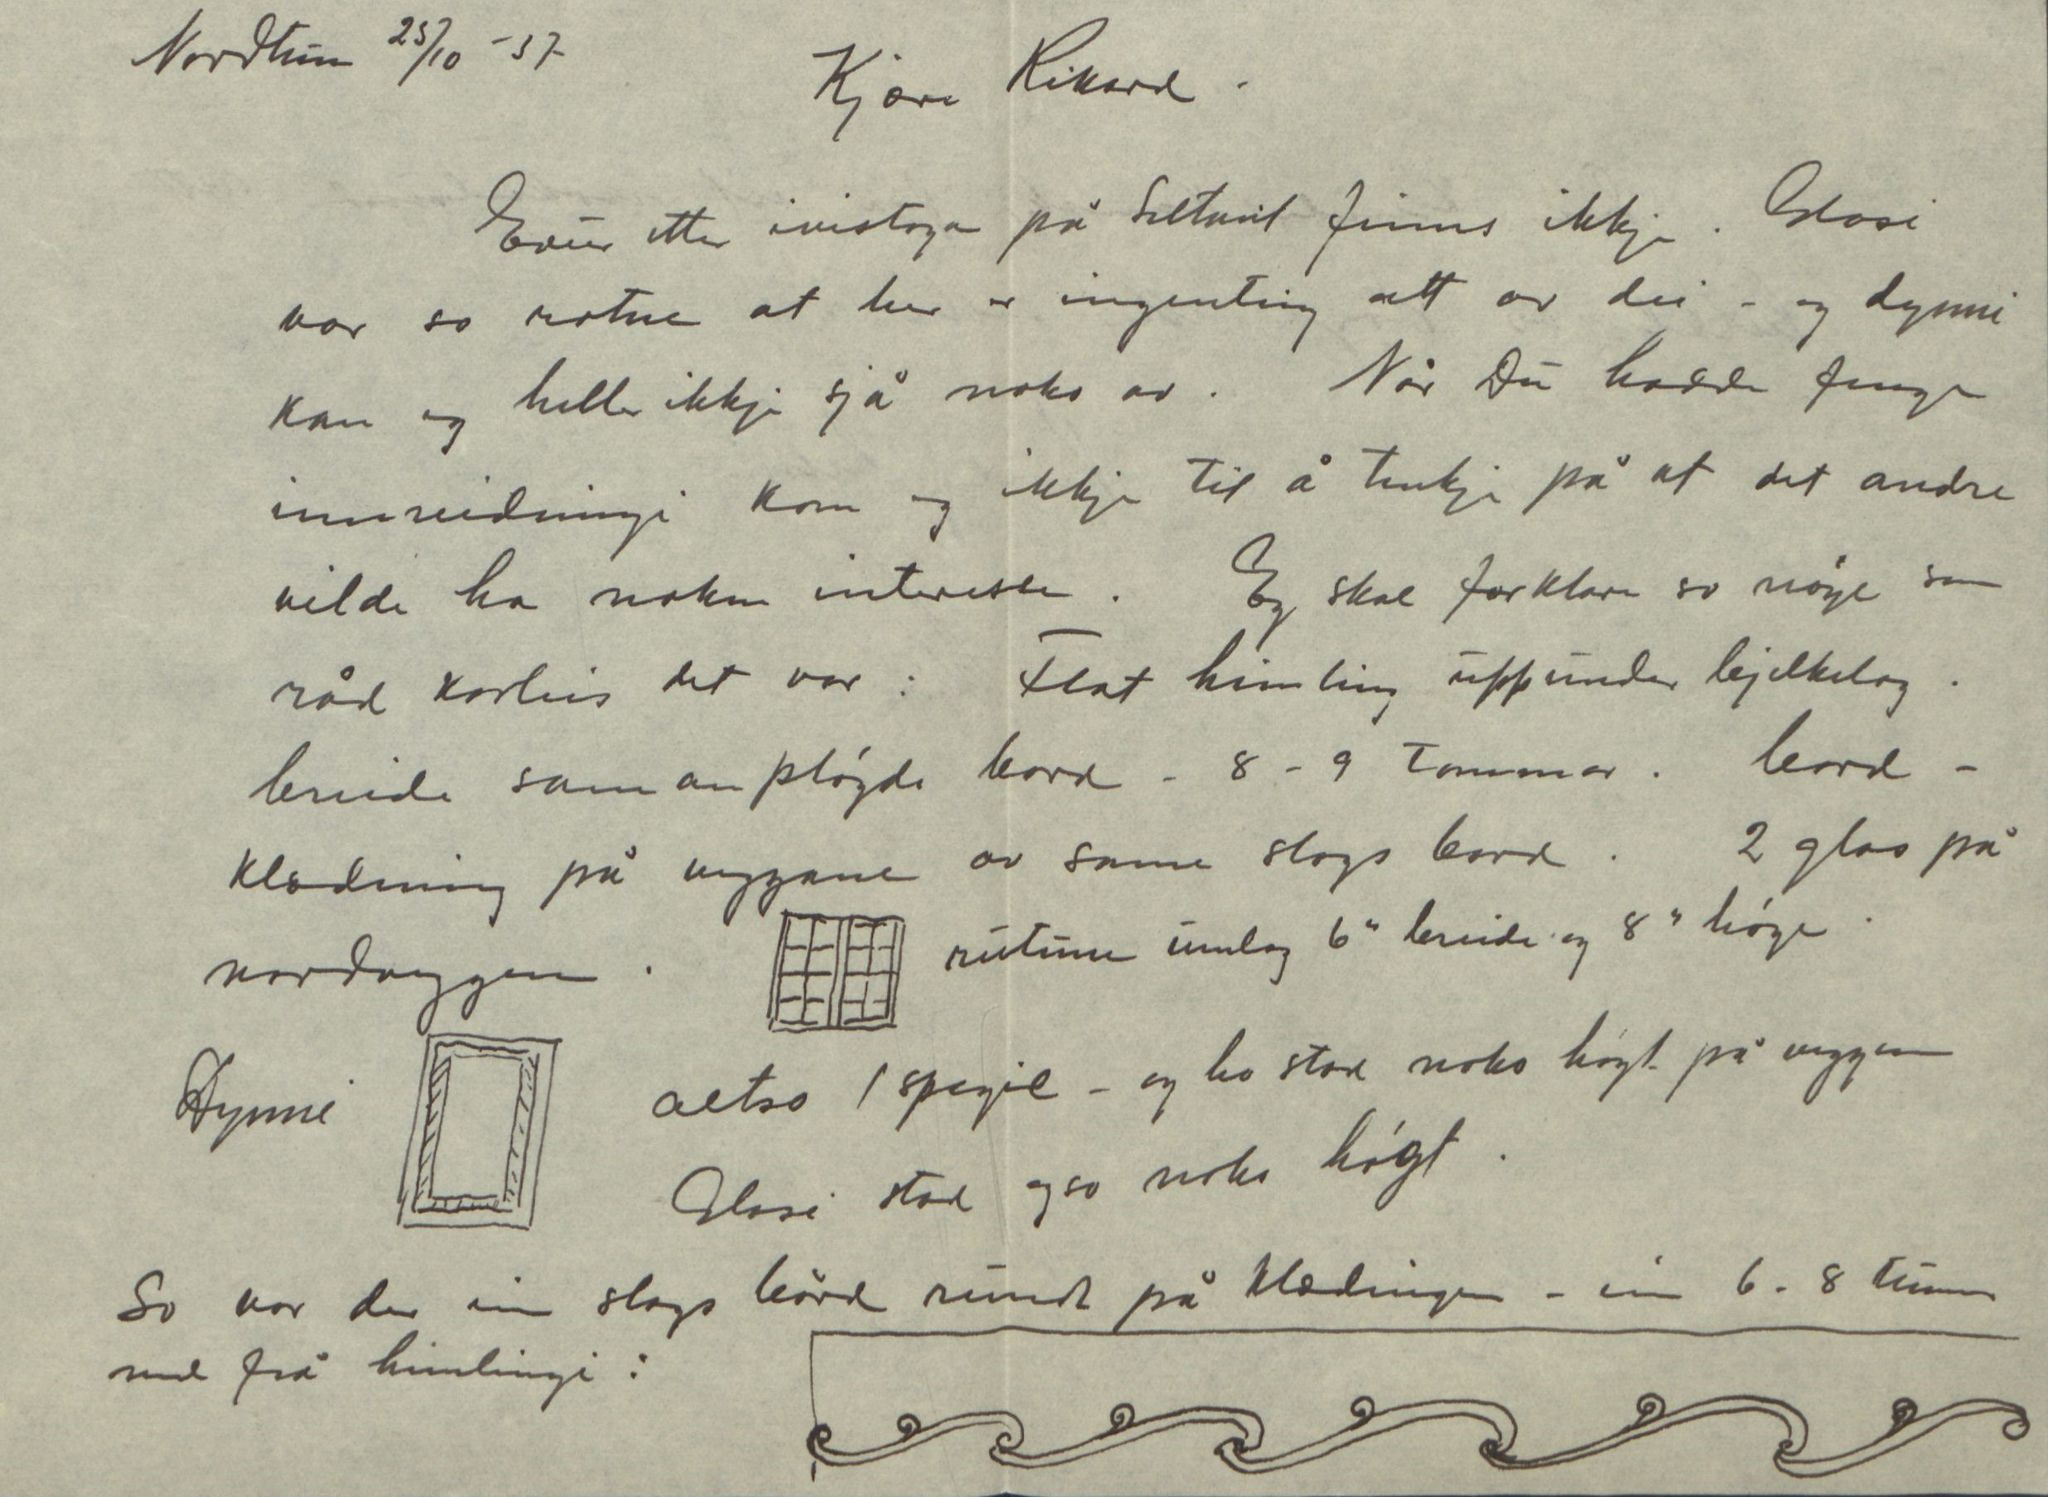 Nordtun 25/10 -37
Kjære Rikard.
etter ivistoga på Seltunit finns ikkje. Glasi
var so rotne at her er ingenting att av dei - og dynni
kan eg heller ikkje sjå noko av. Når Du hadde fenge
innreidningi kom eg ikkje til å tenkje på at det andre
vilde ha nokon interesse. Eg skal forklare so nøye som
råd korleis det var: Flat himling uppunder bjelkelag.
breide samanpløgde bord - 8-9 tommar. bord-
klædning på veggane av same slags bord. 2 glas på
nordveggen. rutune umlag 6" breide og 8" høge.
Dynni altso 1 spegil - og ho stod noko høgt på veggen
Glasi stod ogso noko høgt.
So var der ein slags bård rundt på klædingen - ein 6-8 tumm
ned frå himlingi: